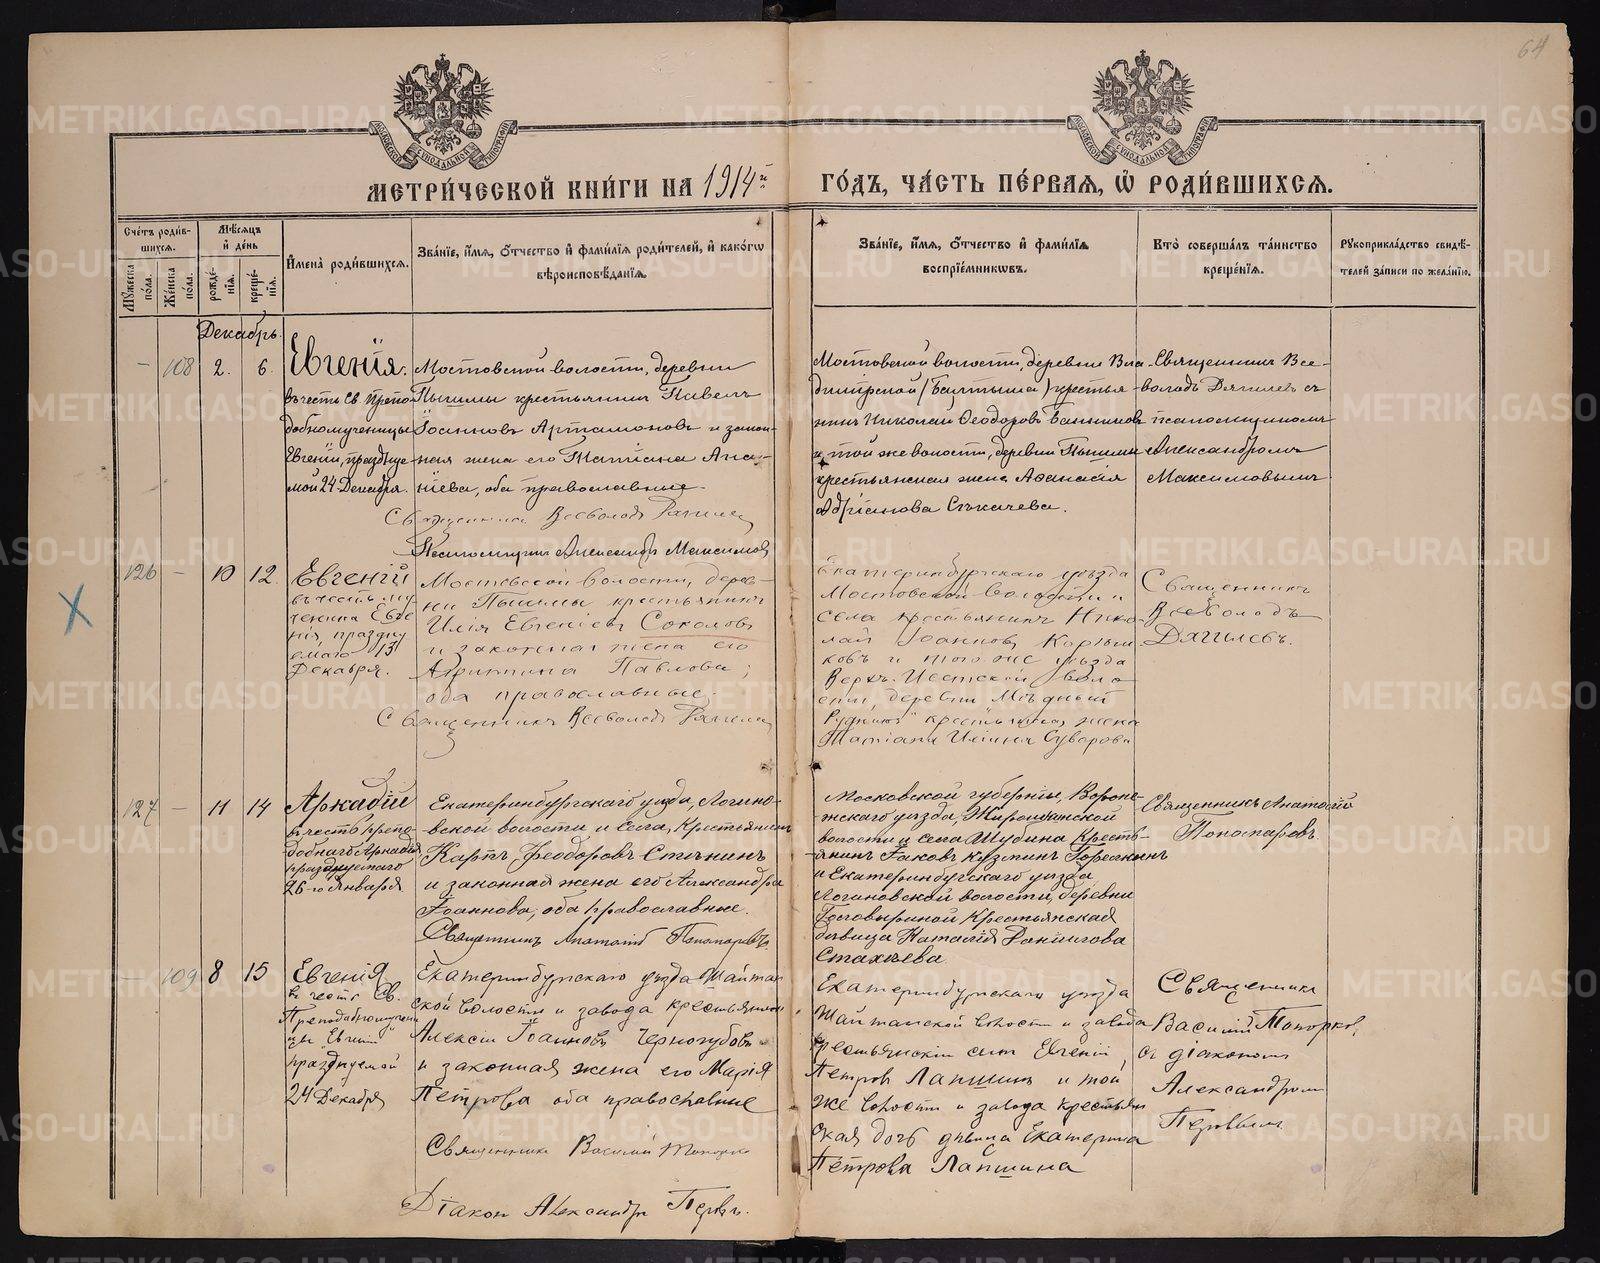 64
МЕТРИ́ЧЕСКОЙ КНИ́ГИ НА 1914й
ГО́ДЪ, ЧА́СТЬ ПЕ́РВАѦ, Ѽ РОДИ́ВШИХСѦ.
Сче́тъ роди́в-
шихсѧ.
Мѣ́сѧцъ
и҆ де́нь
Мꙋ́жеска по́ла.
Же́нска по́ла.
рожде́-
нїѧ.
креще́-
нїѧ.
И҆мена̀ роди́вшихсѧ.
Зва́нїе, и҆́мѧ, ѻ҆́тчество и҆ фами́лїѧ роди́телей, и҆ како́гѡ
вѣроисповѣ́данїѧ.
Зва́нїе, и҆́мѧ, ѻ҆́тчество и҆ фами́лїѧ
воспрїе́мникѡвъ.
Кто̀ соверша́лъ та́инство
креще́нїѧ.
Рꙋкоприкла́дство свидѣ́-
телей за́писи по жела́нїю.
Декабрь.
- 108 2. 6.
Евгенія.
въ честь Св. Препо-
добномученицы
Евгеніи, празднуе-
мой 24 Декабря.
Мостовской волости, деревни
Пышмы крестьянинъ Павелъ
Іоанновъ Артамоновъ и закон-
ная жена его Татіана Ана-
ніева, оба православные.
Священникъ Всеволодъ Дягилев
Псаломщикъ Александръ Максимов
Мостовской волости, деревни Вла-
димірской (Балтыма) крестья-
нинъ Николай Ѳеодоровъ Банниковъ
и той же волости, деревни Пышмы
крестьянская жена Аѳанасія
Адріанова Сыкачева.
Священникъ Все-
володъ Дягилевъ съ
псаломщикомъ
Александромъ
Максимовымъ
126 - 10 12.
Евгеній
въ честь му
ченика Евге
нія, праздну
емаго 13
Декабря.
Мостовской волости, дерев-
ни Пышмы, крестьянинъ
Илія Евгеніевъ Соколовъ
и законная жена его
Павлова;
оба православные.
Священникъ Всеволодъ Дягилев
Екатеринбургскаго уѣзда
Мостовской волости и
села крестьянинъ Нико-
лай Іоанновъ
ковъ и того же уѣзда
Верхъ-Исетской воло-
сти, деревни Мѣдный
Рудникъ" крестьянская жена
Татіана Иліина Суворова
Священникъ
Всеволодъ
Дягилевъ.
127 - 11 14
Аркадій
въ честь препо-
добнаго Аркадія
празднуемаго
26-го Января
Екатеринбургскаго уѣзда, Логино-
вской волости и села, Крестьянинъ
Карпъ Ѳеодоровъ
и законная жена его Александра
Іоаннова, оба православные.
Священникъ Анатолій Пономаревъ
Московской губерніи,
уѣзда,
волости и села Шубина Кресть-
янинъ Іаковъ Кузминъ
и Екатеринбургскаго уѣзда
Логиновской волости, деревни
Крестьянская
дѣвица Наталія
Стахѣева
Священникъ Анатолій
Пономаревъ
- 109 8 15
Евгенія
въ честь Св.
Преподобномучени
цы Евгеніи
празднуемой
24 Декабря
Екатеринбургскаго уѣзда Шайтан
ской волости и завода крестьянинъ
Алексій Іоанновъ Черногубовъ
и законная жена его Марія
Петрова оба православные
Священникъ Василій Топорков
Діаконъ Александръ Первъ.
Екатеринбургскаго уѣзда
Шайтанской волости и завода
крестьянскій сынъ Евгеній
Петровъ Лапшинъ и той
же волости и завода крестьян
ская дочь дѣвица Екатерина
Петрова Лапшина
Священникъ
Василій Топорков,
съ діакономъ
Александромъ
Первымъ
METRIKI.GASO-URAL.RU